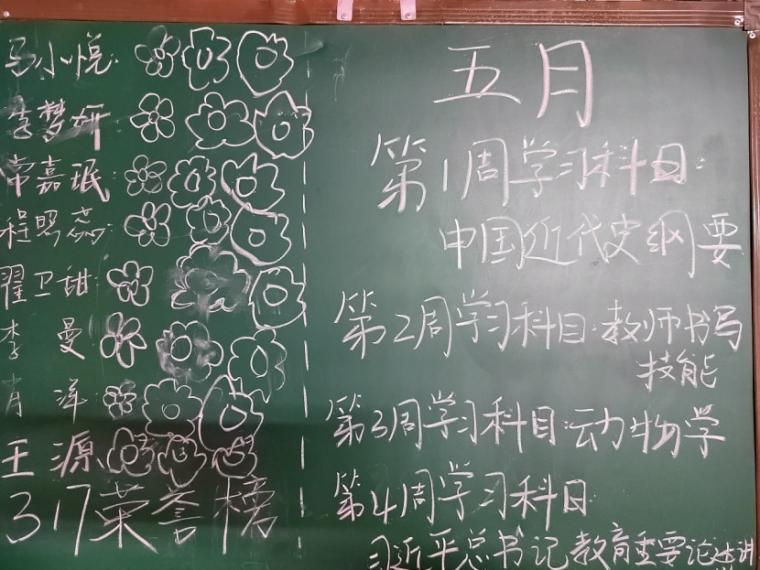 马小悦:
李梦妍
常嘉珉:
程照蕊:
翟卫甜:
李 曼
肖 洋:
王 源
317荣誉榜
五月
第1周学习科目:
中国近代史纲要
第2周学习科目:教师书写
技能
第3周学习科目:动物学
第4周学习科目:
习近平总书记教育重要论述讲